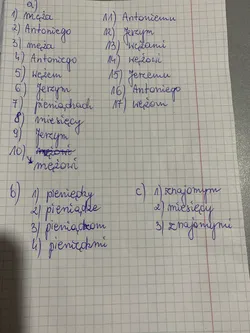 a)
1) męża
2) Antoniego
3) męża
4) Antoniego
5) wężem
6) Jerzym
7) pieniądzach
8) miesięcy
9) Jerzym
10)
mężowi
11) Antoniemu
12) Jerzym
13) wężami
14) wężowi
15) Jerzemu
16) Antoniego
17) wężom
b)
1) pieniędzy
2) pieniądze
3) pieniądzom
4) pieniędzmi
c)
1) znajomym
2) miesięcy
3) znajomymi